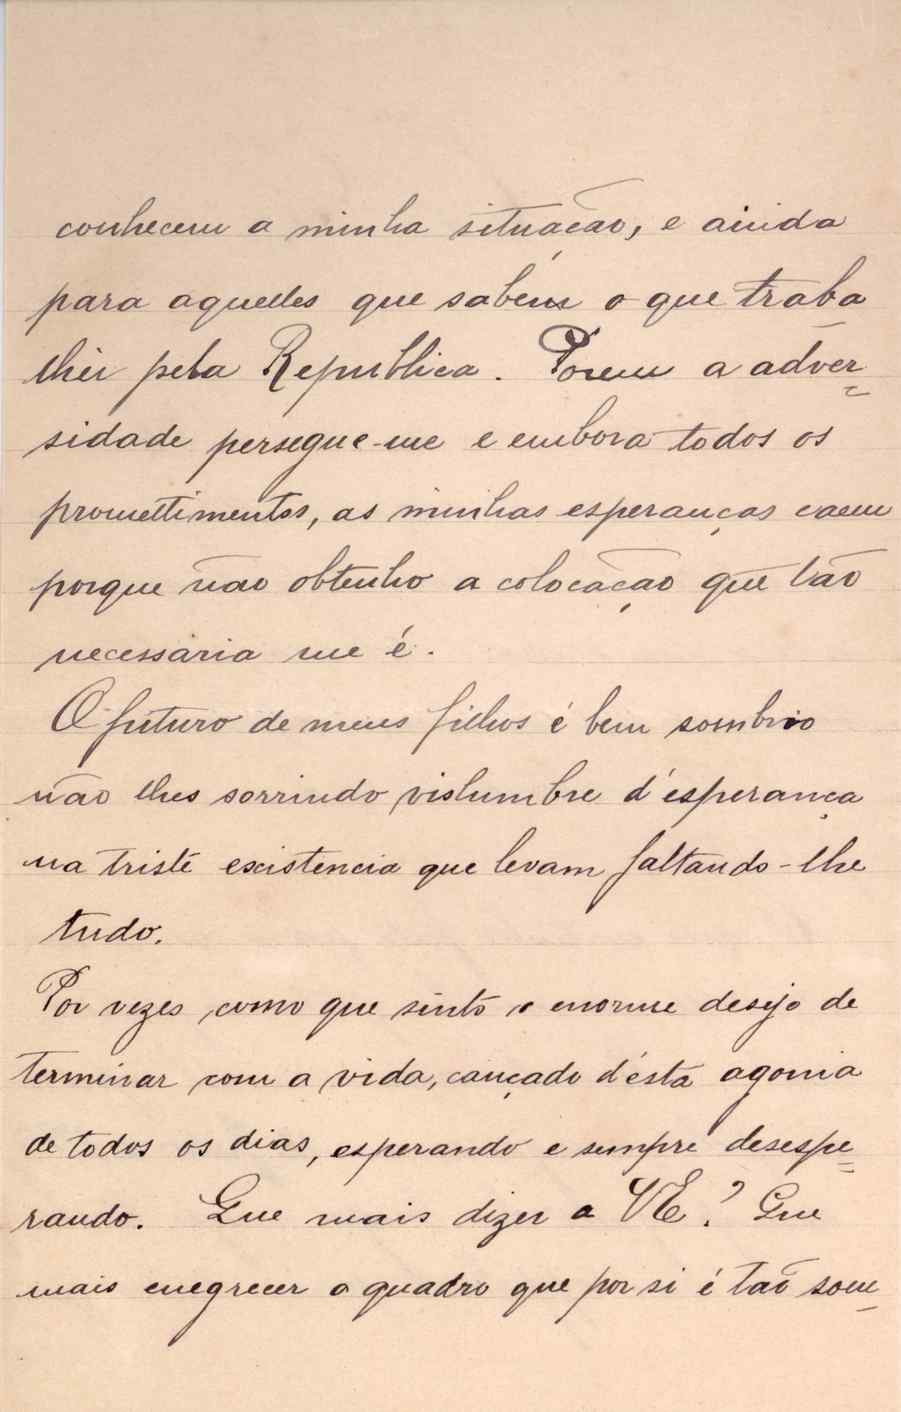 conhecem a minha situação, e ainda
para aquelles que sabem o que traba
lhei pela Republica. Porem a adver=
sidade persegue-me e embora todos os
promettimentos, as minhas esperanças caem
porque não obtenho a colocação que tão
necessaria me é.
O futuro de meus filhos é bem sombrio
não lhes sorrindo vislumbre d'esperança
na triste escistencia que levam faltando-lhe
tudo.
Por vezes como que sinto o enorme desejo de
terminar com a vida, cançado d'esta agonia
de todos os dias, esperando e sempre desespe=
rando. Que mais dizer a VE? Que
mais enegrecer o quadro que por si é tão som=